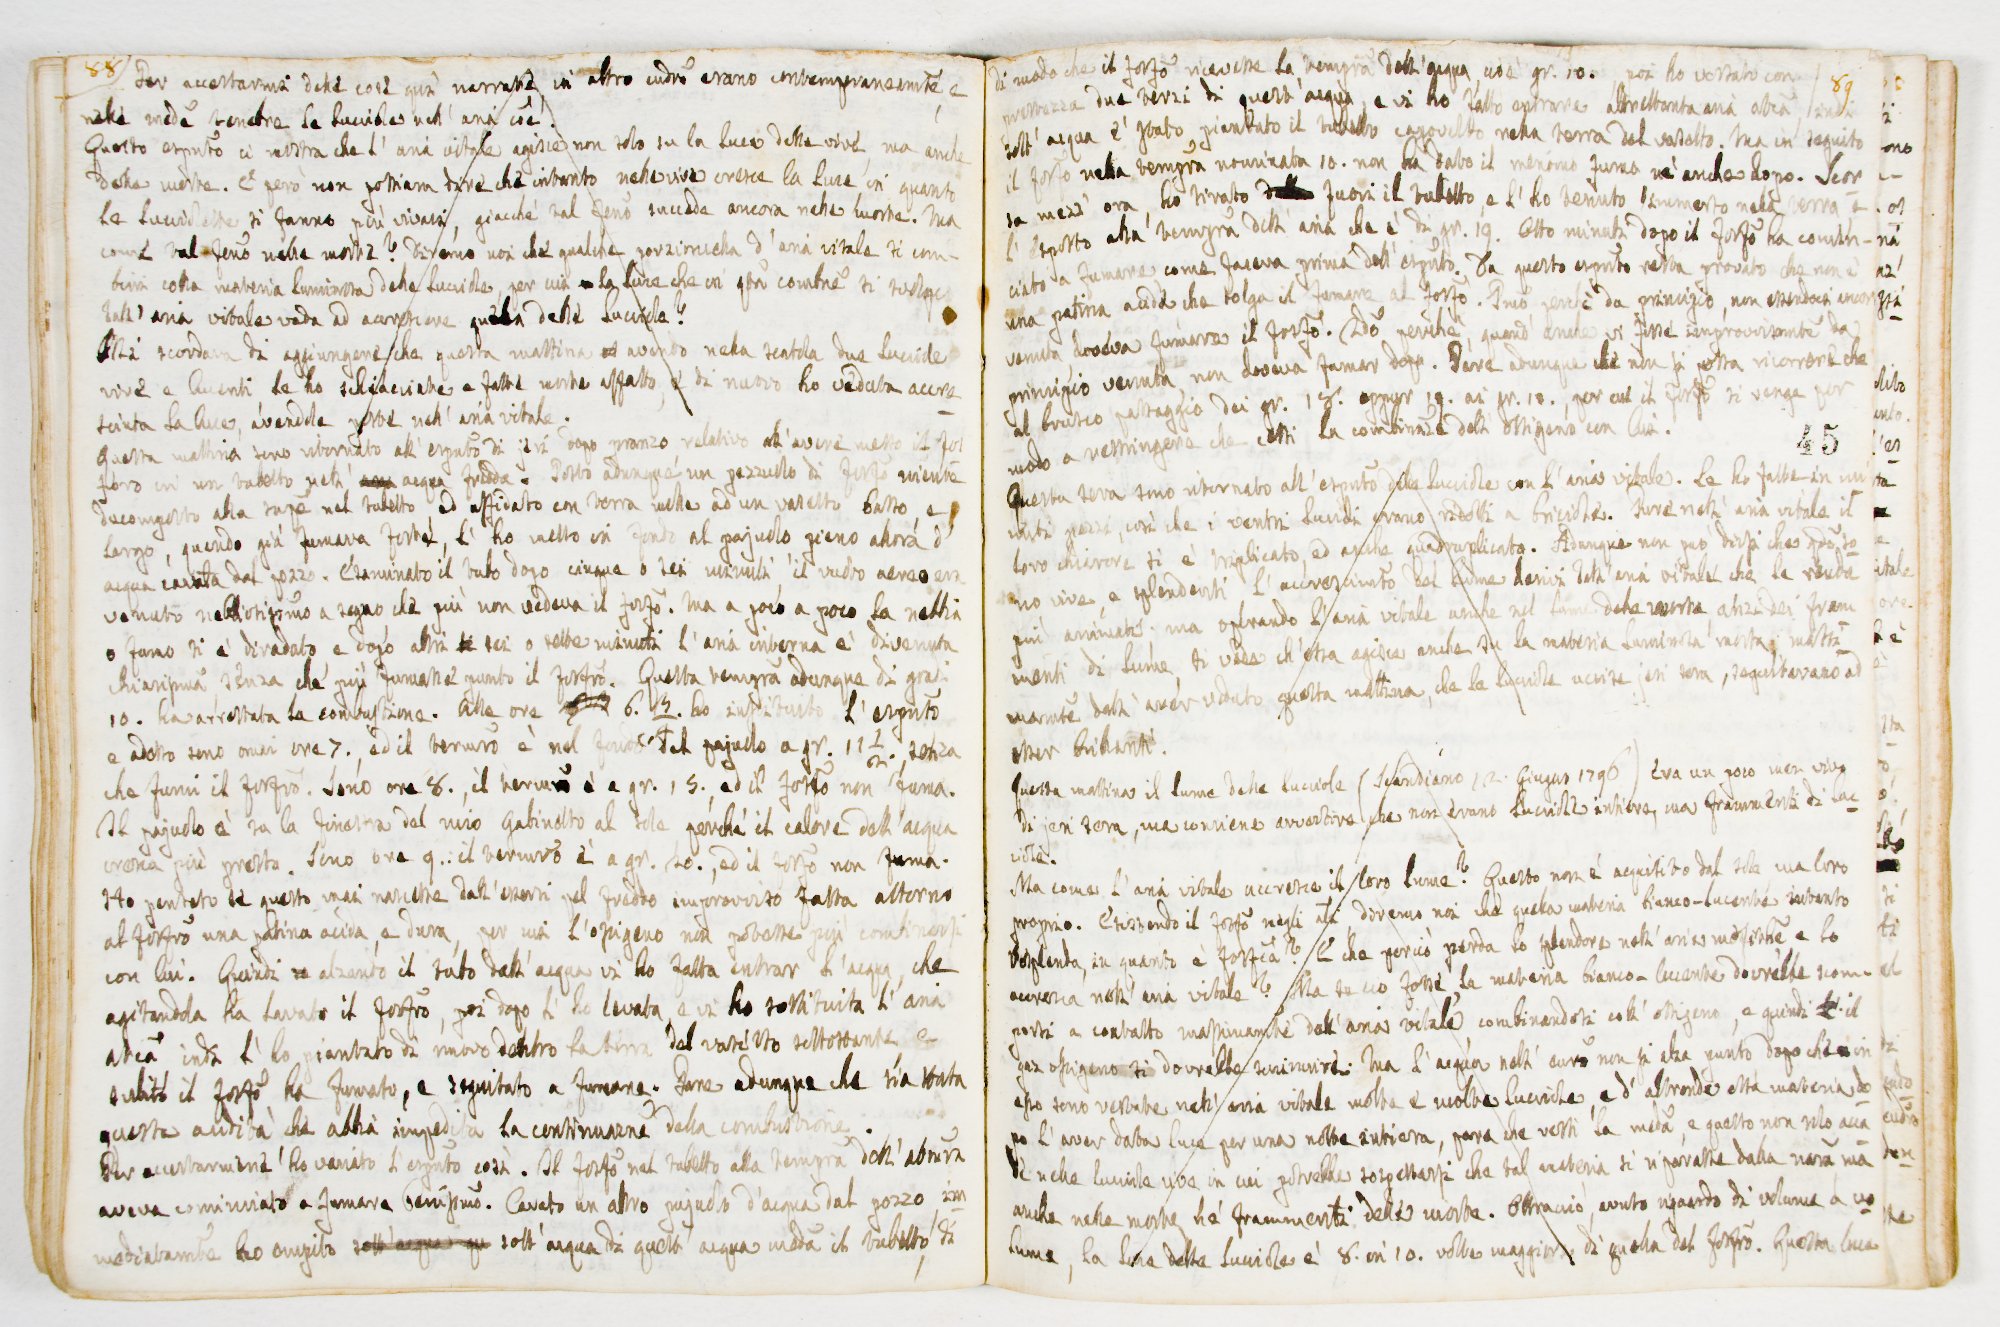 88
Per accertarmi delle cose qui narrate in altro eudro erano contemporaneamte e
nelle medẽ tenebre le lucciole nell' aria coẽ.
Questo esprto ci mostra che l' aria vitale agisce non solo su la luce delle vive, ma anche
delle morte. E però non possiam dire che intanto nelle vive cresce la luce, in quanto
le lucciolette si fanno più vivaci, giacchè tal fenõ succede ancora nelle morte. Ma
come tal fenõ nelle morte? Diremo noi che qualche porzioncella d' aria vitale si com-
bini colla materia luminosa delle lucciole, per cui la luce che in qta combne si svolge
dall' aria vitale vada ad accrescere quella delle lucciole?
Mi scordava di aggiungere che questa mattina avendo nella scatola due lucciole
vive e lucenti le ho schiacciate e fatte morte affatto, e di nuovo ho veduta accre-
sciuta la luce, avendole poste nell' aria vitale.
Questa mattina sono ritornato all' esprto di jeri dopo pranzo relativo all' avere messo il fos
foro in un tubetto nell' acqua fredda. Posto adunque un pezzuolo di fosfõ niente
decomposto alla supẽ nel tubetto ed affidato con terra molle ad un vasetto basso e
largo, quando già fumava forte, l' ho messo in fondo al pajuolo pieno allora d'
acqua cavata dal pozzo. Esaminato il tubo dopo cinque o sei minuti il vuoto aereo era
venuto nebbiosissimo a segno che più non vedeva il fosfõ. Ma a poco a poco la nebbia
o fumo si è diradato e dopo altri sei o sette minuti l' aria interna è divenuta
chiarissima, senza che più fumasse punto il fosfrõ. Questa temprã adunque di gradi
10. ha arrestata la combustione. Alle ore 6. ½. ho instituito l' esprto
e adesso sono omai ore 7., ed il termrõ è nel fondo del pajuolo a gr. 11 ½., senza
che fumi il fosfrõ. Sono ore 8., il termrõ è a gr. 15., ed il fosfõ non fuma.
Il pajuolo è su la finestra del mio gabinetto al sole perchè il calore dell' acqua
cresca più presto. Sono ore 9.: il termrõ è a gr. 20., ed il fosfõ non fuma.
Ho pensato se questo mai nascesse dall' essersi pel freddo improvviso fatta attorno
al fosfrõ una patina acida, e dura, per cui l' ossigeno non potesse più combinarsi
con lui. Quindi alzando il tubo dall' acqua vi ho fatta entrar l' acqua, che
agitandola ha lavato il fosfrõ, poi dopo l' ho levata, e vi ho sostituita l' aria
atcã indi l' ho piantato di nuovo dentro la terra del vasetto sottostante e
subito il fosfõ ha fumato, e seguitato a fumare. Pare adunque che sia stata
questa acidità che abbia impedita la continuazne della combustione.
Per accertarmene ho variato l' esprto così. Il fosfõ nel tubetto alla temprã dell' atmsrã
aveva cominciato a fumare benissimo. Cavato un altro pajuolo d' acqua dal pozzo, im-
mediatamte ho empito sott' acqua di quell' acqua medã il tubetto, di
89
di modo che il fosfõ ricevesse la temprã dell' acqua, cioè gr. 10., poi ho votato con
prestezza due terzi di quest' acqua, e vi ho fatto entrare altrettanta aria atcã, indi
sott' acqua è stato piantato il tubetto capovolto nella terra del vasetto. Ma in seguito
il fosfõ nella temprã nominata 10. non ha dato il menomo fumo nè anche dopo. Scor
sa mezz' ora, ho tirato fuori il tubetto, e l' ho tenuto immerso nella terra e
l' esposto alla temprã dell' aria che è di gr. 19. Otto minuti dopo il fosfõ ha comin-
ciato a fumare come faceva prima dell' esprto. Da questo esprto resta provato che non è
una patina acida che tolga il fumare al fosfõ. Pmõ perchè da principio, non essendoci ancor
venuta doveva fumare il fosfõ. 2dõ perchè quand' anche vi fosse improvvisamte da
principio venuta non doveva fumar dopo. Pare adunque che non si possa ricorrere che
al brusco passaggio dei gr. 18. oppur 19. ai gr. 10., per cui il fosfõ si venga per
modo a restringere che cessi la combinazne dell' ossigeno con lui.
45
Questa sera sono ritornato all' esprto delle lucciole con l' aria vitale. Le ho fatte in mi
nuti pezzi, così che i ventri lucidi erano ridotti a bricciole. Pure nell' aria vitale il
loro chiarore si è triplicato, ed anche quadruplicato. Adunque non può dirsi che qdo so-
no vive, e splendenti l' accrescimento del lume derivi dall' aria vitale che le rende
più animate; ma operando l' aria vitale anche nel lume delle morte anzi dei fram
menti di lume, si vede ch' essa agisce anche su la materia luminosa morta; massi-
mamte dall' aver veduto questa mattina, che le lucciole uccise jeri sera, seguitavano ad
esser brillanti.
Questa mattina il lume delle lucciole (Scandiano 12. Giugno 1796) era un poco men vivo
di jeri sera, ma conviene avvertire che non erano lucciole intiere, ma frammenti di luc-
ciole.
Ma come l' aria vitale accresce il loro lume? Questo non è acquisito dal sole ma loro
proprio. Esistendo il fosfõ negli ali, diremo noi che quella materia bianco-lucente intanto
risplenda, in quanto è fosfcã? E che perciò perda lo splendore nell' aria mefitchẽ e lo
accresca nell' aria vitale? Ma se ciò fosse la materia bianco-lucente dovrebbe scom-
porsi a contatto massimamte dell' aria vitale combinandosi coll' ossigeno, e quindi il
gaz ossigeno si dovrebbe sminuire. Ma l' acqua nell' eurõ non si alza punto dopo che in
esso sono restate nell' aria vitale molte e molte lucciole, e d' altronde essa materia do
po l' aver data luce per una notte intiera, pare che resti la medã, e questo non solo acca
de nelle lucciole vive in cui potrebbe sospettarsi che tal materia si riparasse dalla natrã ma
anche nelle morte, ne' frammenti delle morte. Oltracciò, avuto riguardo di volume a vo
lume, la luce delle lucciole è 8. in 10. volte maggiore di quella del fosfrõ. Questa luce